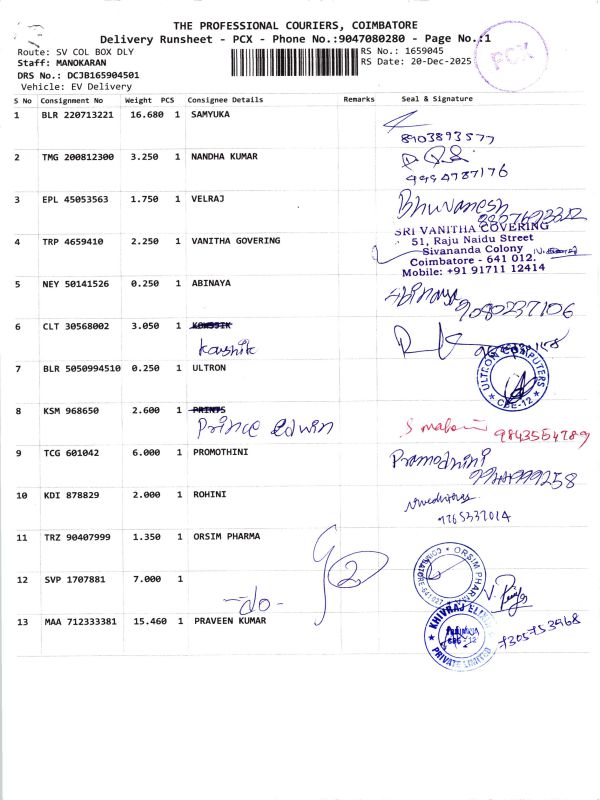 THE PROFESSIONAL COURIERS, COIMBATORE
Delivery Runsheet - PCX - Phone No.:9047080280 - Page No.:1
Route: SV COL BOX DLY
RS No.: 1659045
PCX
Staff: MANOKARAN
RS Date: 20-Dec-2025
DRS No.: DCJB165904501
Vehicle: EV Delivery
S No Consignment No Weight PCS Consignee Details Remarks Seal & Signature
1 BLR 220713221 16.680 1 SAMYUKA
8903893577
2 TMG 200812300 3.250 1 NANDHA KUMAR
9994787176
3 EPL 45053563 1.750 1 VELRAJ Bhuvanesh
4 TRP 4659410 2.250 1 VANITHA GOVERING
SRI VANITHA COVERING
51, Raju Naidu Street
Sivananda Colony
Coimbatore - 641 012.
Mobile: +91 91711 12414
5 NEY 50141526 0.250 1 ABINAYA Abinaya
9080237106
6 CLT 30568002 3.050 1 KOWSSIK
Kaushik
7 BLR 5050994510 0.250 1 ULTRON
ULTCOM COMPUTERS
CBE-12
8 KSM 968650 2.600 1 PRINTS
Prince Edwin
9843554789
9 TCG 601042 6.000 1 PROMOTHINI Pramodhini
9944999258
10 KDI 878829 2.000 1 ROHINI
9765332014
11 TRZ 90407999 1.350 1 ORSIM PHARMA
ORSIM PHARMA
COIMBATORE
2
12 SVP 1707881 7.000 1
-do-
13 MAA 712333381 15.460 1 PRAVEEN KUMAR
KHIVRAJ
PRIVATE LIMITED
CBE - 12
7305753968